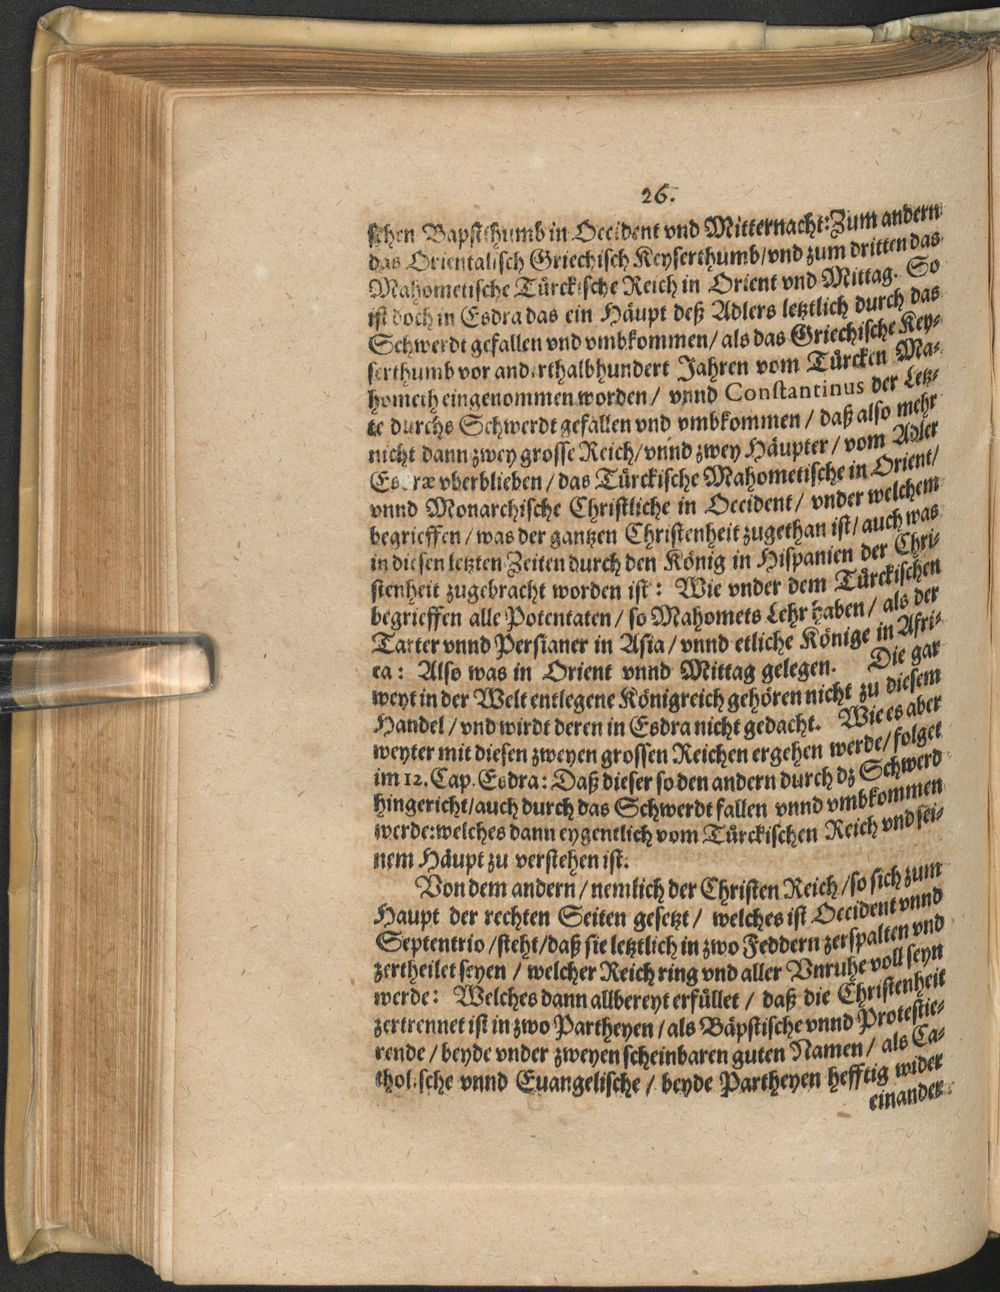 26.
schen Bapsthumb in Occident vnd Mitternacht: Zum andern
das Orientalisch Griechisch Keyserthumb / vnd zum dritten das
Mahometische Türckische Reich in Orient vnd Mittag. So
ist doch in Esdra das ein Häupt deß Adlers letztlich durch das
Schwerdt gefallen vnd vmbkommen / als das Griechische Key-
serthumb vor anderthalbhundert Jahren vom Türcken Ma-
hometh eingenommen worden / vnnd Constantinus der Letz-
te durchs Schwerdt gefallen vnd vmbkommen / daß also mehr
nicht dann zwey grosse Reich / vnnd zwey Häupter / vom Adler
Esdræ vberblieben / das Türckische Mahometische in Orient /
vnnd Monarchische Christliche in Occident / vnder welchem
begrieffen / was der gantzen Christenheit zugethan ist / auch was
in diesen letzten Zeiten durch den König in Hispanien der Chri-
stenheit zugebracht worden ist: Wie vnder dem Türckischen
begrieffen alle Potentaten / so Mahomets Lehr haben / als der
Tarter vnnd Persianer in Asia / vnnd etliche Könige in Afri-
ca: Also was in Orient vnnd Mittag gelegen. Die gar
weyt in der Welt entlegene Königreich gehören nicht zu diesem
Handel / vnd wirdt deren in Esdra nicht gedacht. Wie es aber
weyter mit diesen zweyen grossen Reichen ergehen werde / folget
im 12. Cap. Esdra: Daß dieser so den andern durch dz Schwerd
hingericht / auch durch das Schwerdt fallen vnnd vmbkommen
werde: welches dann eygentlich vom Türckischen Reich vnd sei-
nem Häupt zu verstehen ist.
Von dem andern / nemlich der Christen Reich / so sich zum
Haupt der rechten Seiten gesetzt / welches ist Occident vnnd
Septentrio / steht / daß sie letztlich in zwo Feddern zerspalten vnd
zertheilet seyen / welcher Reich ring vnd aller Vnruhe voll seyn
werde: Welches dann allbereyt erfüllet / daß die Christenheit
zertrennet ist in zwo Partheyen / als Bäpstische vnnd Protestie-
rende / beyde vnder zweyen scheinbaren guten Namen / als Ca-
tholische vnnd Euangelische / beyde Partheyen hefftig wider
einander